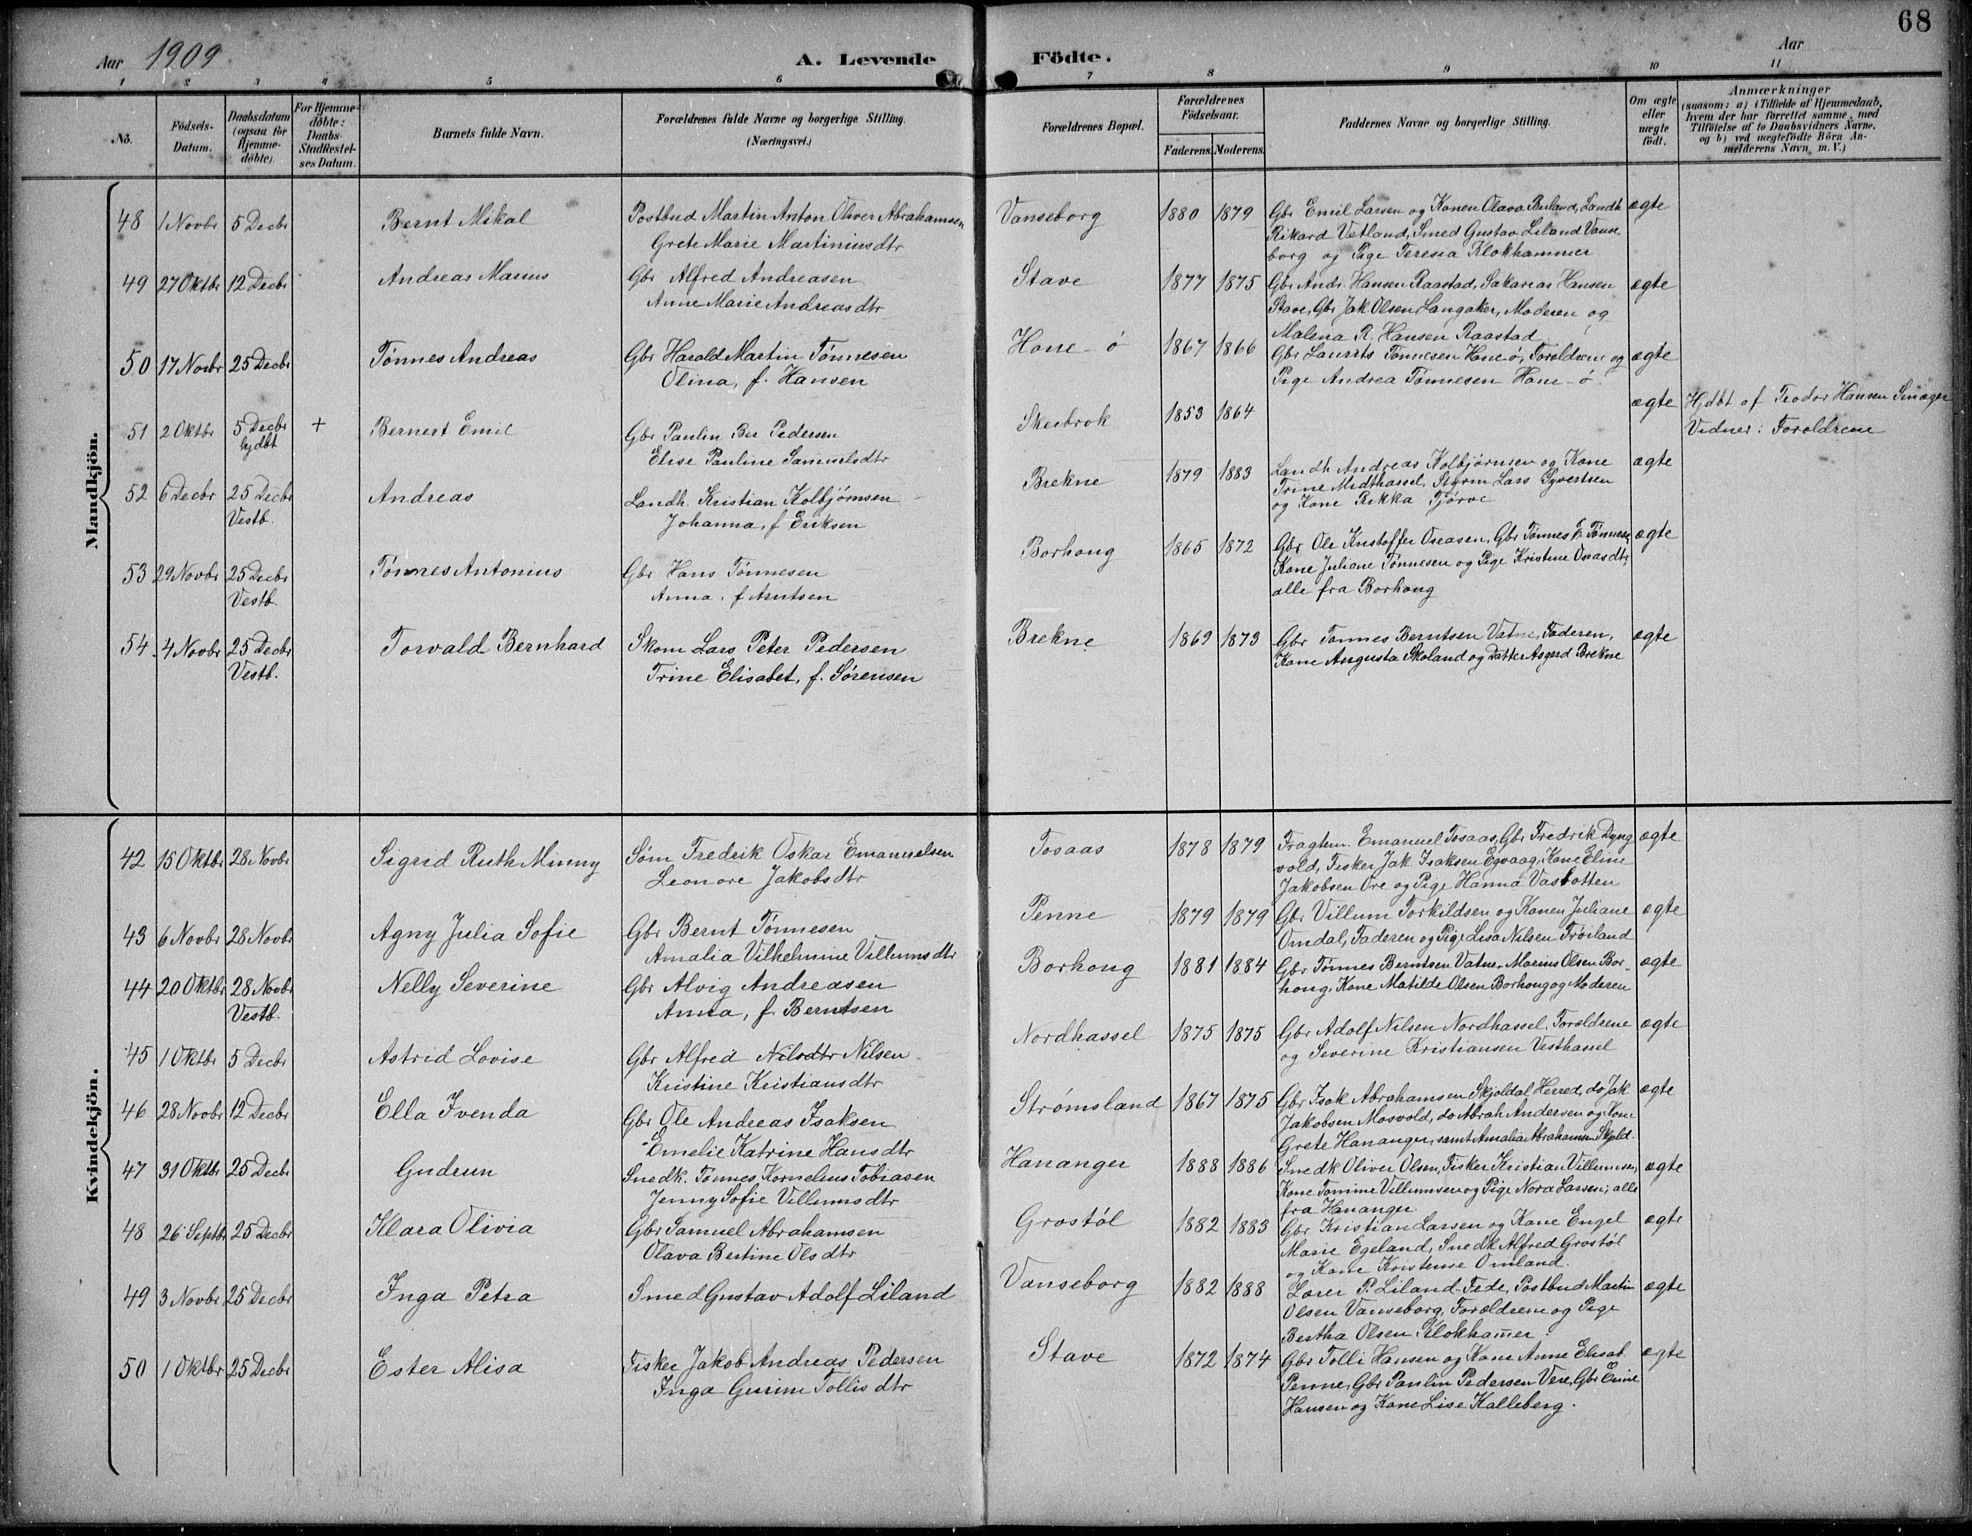 68
Aar 1909
A. Levende Födte.
Aar
1 2 3 4 5 6 7 8 9 10 11
No.
Födsels-Datum.
Daabsdatum (ogsaa for Hjemmedöbte).
For Hjemmedöbte: Daabs-Stadfæstelses Datum.
Barnets fulde Navn.
Forældrenes fulde Navne og borgerlige Stilling. (Næringsvei.)
Forældrenes Bopæl.
Forældrenes Födselsaar.
Faderens. Moderens.
Faddernes Navne og borgerlige Stilling.
Om ægte eller uægte födt.
Anmærkninger
(saasom: a) i Tilfælde af Hjemmedaab, hvem der har forrettet samme, med Tilföielse af to Daabsvidners Navne, og b) ved uægtefödte Börn Anmelderens Navn m. V.)
Mandkjön.
48 1 Novbr 5 Decbr Bernt Mikal Postbud Martin Anton Oliver Abrahamsen Vanseborg 1880 1879 Gbr Emil Larsen og Konen Olava Buland, Landh ægte
Grete Marie Martiniusdtr Rikard Vetland, Smed Gustav Liland Vanse
borg og Pige Teresia Klokhammer
49 27 Oktbr 12 Decbr Andreas Marius Gbr Alfred Andreasen Stave 1877 1875 Gbr Andr. Hansen Raastad, Sakarias Hansen ægte
Anne Marie Andreasdtr Stave, Gbr Jak Olsen Langaker, Moderen og
Malena R. Hansen Raastad
50 17 Novbr 25 Decbr Tønnes Andreas Gbr Harald Martin Tønnesen Hone-ø 1867 1866 Gbr Laurits Tønnesen Hone-ø, Foreldrene og ægte
Olina, f. Hansen Pige Andrea Tønnesen Hone-ø
51 2 Oktbr 5 Decbr hjdbt + Bernert Emil Gbr Paulin Ber Pedersen Skeibrok 1853 1864 ægte Hjdbt af Teodor Hansen
Elise Pauline Samuelsdtr Vidner: Foreldrene
52 6 Decbr 25 Decbr Vestb. Andreas Landh. Kristian Kolbjørnsen Brekne 1879 1883 Landh. Andreas Kolbjørnsen og Kone ægte
Johanna, f Eriksen Trine Midthassel, Styrm Lars Syvertsen
og Kone Rikka Tjørve
53 29 Novbr 25 Decbr Vestb. Tønnes Antonius Gbr Hans Tønnesen Borhoug 1865 1872 Gbr Ole Kristoffer Oseasen, Gbr Tønnes T. Tønnesen ægte
Anna, f Arntsen Kone Juliane Tønnesen og Pige Kristine Oseasdtr,
alle fra Borhoug
54 4 Novbr 25 Decbr Vestb. Torvald Bernhard Skom Lars Peter Pedersen Brekne 1869 1873 Gbr Tønnes Berntsen Vatne, Faderen, ægte
Trine Elisabet, f. Sørensen Kone Augusta Skoland og Datter Asgerd Brekne
Kvindekjön.
42 15 Oktbr 28 Novbr Sigrid Ruth Minny Søm Fredrik Oskar Emanuelsen Tosaas 1878 1879 Fragtem. Emanuel Tosaas, Gbr Fredrik Dyng ægte
Leonore Jakobsdtr vold, Fisker Jak. Isaksen Egvaag, Kone Eline
Jakobsen Ore og Pige Hanna Vasbotten
43 6 Novbr 28 Novbr Agny Julia Sofie Gbr Bernt Tønnesen Penne 1879 1879 Gbr Villum Torkildsen og Konen Juliane ægte
Amalia Vilhelmine Villumsdtr Omdal, Faderen og Pige Lisa Nilsen Trøiland
44 20 Oktbr 28 Novbr Vestb. Nelly Severine Gbr Alvig Andreasen Borhoug 1881 1884 Gbr Tønnes Berntsen Vatne, Marius Olsen Bor- ægte
Anna, f. Berntsen houg, Kone Matilde Olsen Borhoug og Moderen
45 1 Oktbr 5 Decbr Astrid Lovise Gbr Alfred Nilsdtr Nilsen Nordhassel 1875 1875 Gbr Adolf Nilsen Nordhassel, Foreldrene ægte
Kristine Kristiansdtr og Severine Kristiansen Vesthassel
46 28 Novbr 12 Decbr Ella Ivenda Gbr Ole Andreas Isaksen Strømsland 1867 1875 Gbr Isak Abrahamsen Skjoldal Herred, do Jak ægte
Emelie Katrine Hansdtr Jakobsen Mosvold, do Abrah Andersen og Kone
Grete Hananger, samt Amalia Abrahamsen Skjold.
47 31 Oktbr 25 Decbr Gudrun Snedk. Tønnes Kornelius Tobiasen Hananger 1888 1886 Snedk Oliver Olsen, Fisker Kristian Villumsen, ægte
Jenny Sofie Villumsdtr Kone Tomine Villumsen og Pige Nora Larsen; alle
fra Hananger
48 26 Septbr 25 Decbr Klara Olivia Gbr Samuel Abrahamsen Grostøl 1882 1883 Gbr Kristian Larsen og Kone Engel ægte
Olava Bertine Olsdtr Marie Egeland, Snedk Alfred Grostøl
og Kone Kristense Omland.
49 3 Novbr 25 Decbr Inga Petra Smed Gustav Adolf Liland Vanseborg 1882 1888 Lærer P. Liland Fede, Postbud Martin ægte
Olsen Vanseborg, Foreldrene og Pige
Bertha Olsen Klokham̄er.
50 1 Oktbr 25 Decbr Ester Alisa Fisker Jakob Andreas Pedersen Stave 1872 1874 Gbr Tolli Hansen og Kone Anne Elisab ægte
Inga Gurine Tollisdtr Penne, Gbr Paulin Pedersen Vere, Gbr
Hansen og Kone Lise Kalleberg.